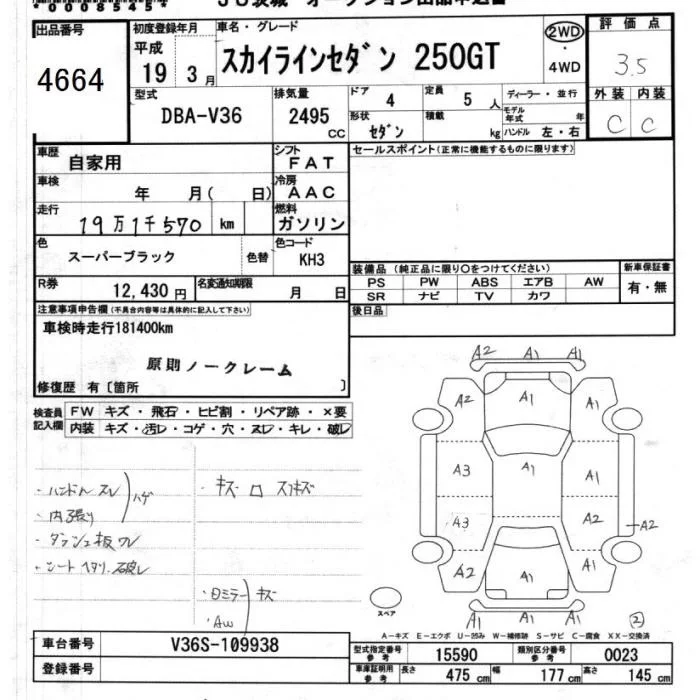 *0008545*
JU茨城 オークション出品申込書
出品番号
4664
初度登録年月
平成
19 3月
車名・グレード
スカイラインセダン 250GT
2WD
・
4WD
評価点
3.5
外装 内装
C C
型式
DBA-V36
排気量
2495
CC
ドア
4
定員
5 人
ディーラー・並行
モデル年式 年
形状
セダン
積載
kg
ハンドル 左・右
車歴
自家用
シフト
FAT
セールスポイント(正常に機能するものに限ります)
車検
年 月( 日)
冷房
AAC
走行
19万1千570 km
燃料
ガソリン
色
スーパーブラック
色替
色コード
KH3
装備品 (純正品に限り○をつけてください)
新車保証書
PS PW ABS エアB AW
SR ナビ TV カワ
有・無
R券
12,430 円
名変通知期限
月 日
後日品
注意事項申告欄(不具合内容等は具体的に記入して下さい)
車検時走行181400km
原則ノークレーム
修復歴 有〔箇所 〕
検査員記入欄
FW キズ・飛石・ヒビ割・リペア跡・×要
内装 キズ・汚レ・コゲ・穴・ヌレ・キレ・破レ
・ハンドル スレ
・内張り
ハゲ
・ダッシュ板 ワレ
・シート ヘタリ、破レ
・キズ ロ スリキズ
・ロミラー キズ
・AW
A2 A1 A1
A2 A1 A1
A3 A1 A1
A3 A2 A2
A2 A1 A1
A1 A1 A1
スペア
②
A-キズ E-エクボ U-凹み W-補修跡 S-サビ C-腐食 XX-交換済
車台番号
V36S-109938
型式指定番号
参考
15590
類別区分番号
参考
0023
登録番号
車庫証明用
参考
長さ
475 cm
幅
177 cm
高さ
145 cm